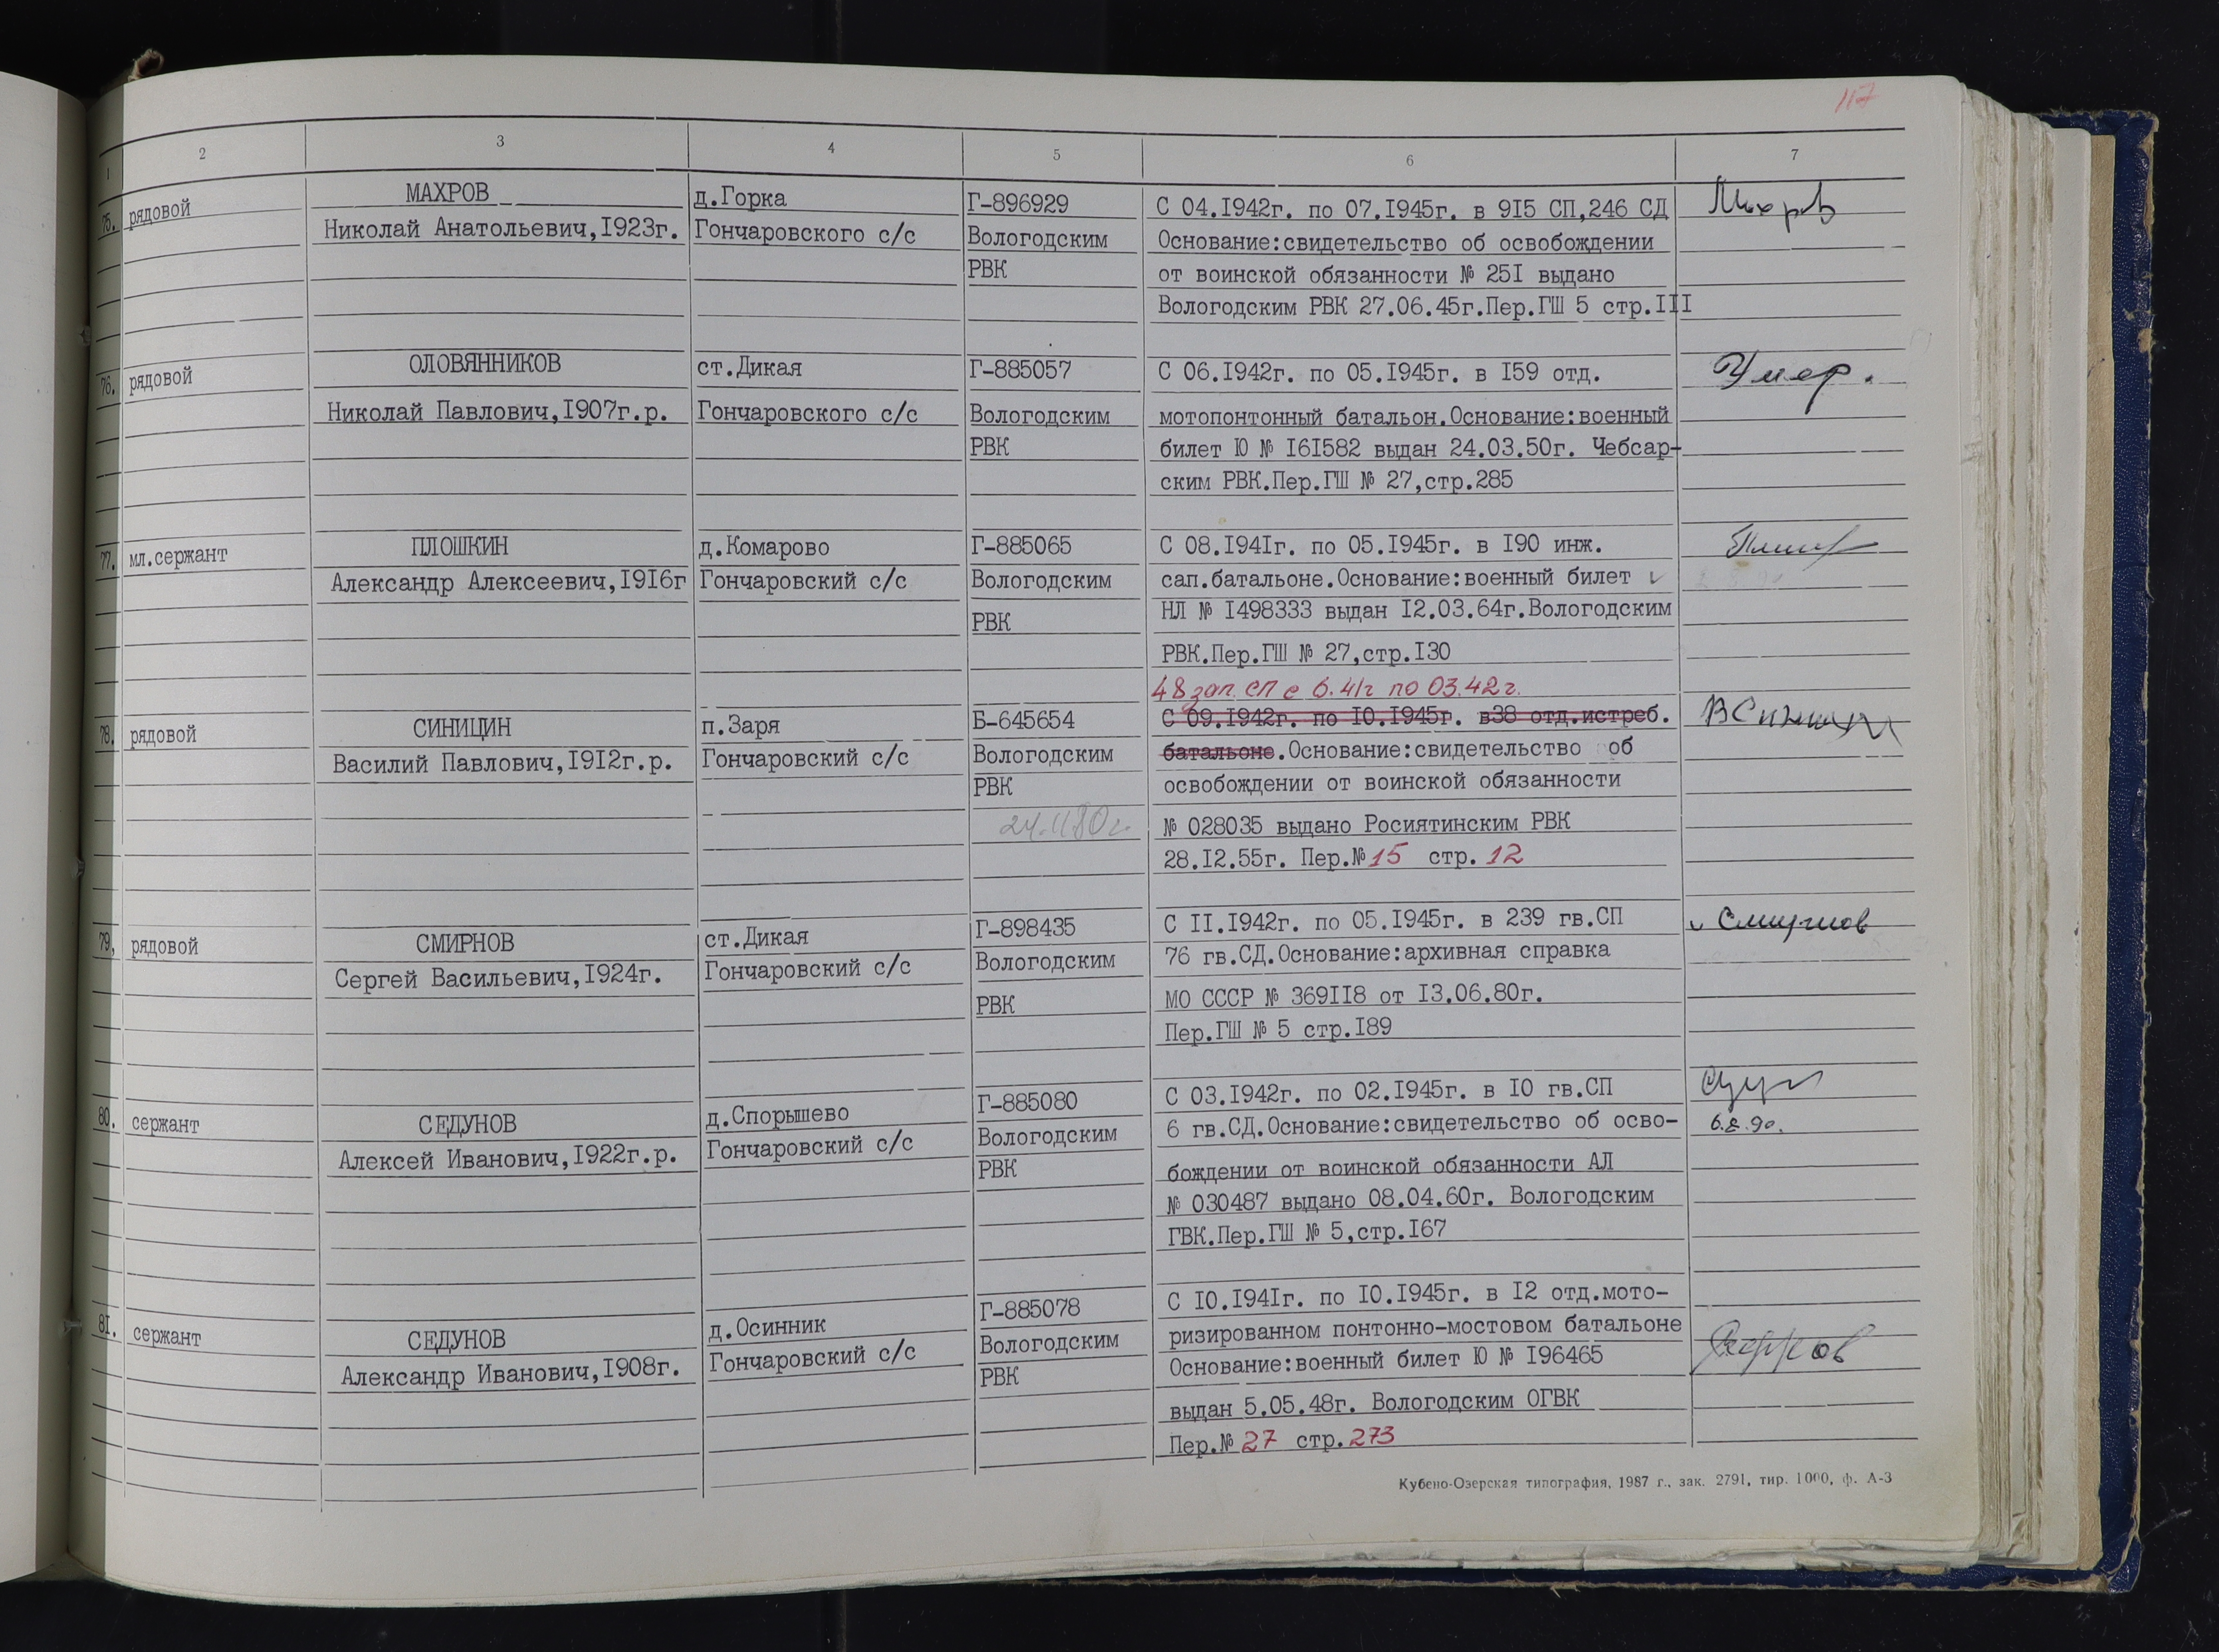 117
1 2 3 4 5 6 7
75. рядовой
МАХРОВ
Николай Анатольевич,I923г.
д.Горка
Гончаровского с/с
Г-896929
Вологодским
РВК
С 04.I942г. по 07.I945г. в 9I5 СП,246 СД
Основание:свидетельство об освобождении
от воинской обязанности № 25I выдано
Вологодским РВК 27.06.45г.Пер.ГШ 5 стр.III
Махров
76. рядовой
ОЛОВЯННИКОВ
Николай Павлович,I907г.р.
ст.Дикая
Гончаровского с/с
Г-885057
Вологодским
РВК
С 06.I942г. по 05.I945г. в I59 отд.
мотопонтонный батальон.Основание:военный
билет Ю № I6I582 выдан 24.03.50г. Чебсар-
ским РВК.Пер.ГШ № 27,стр.285
Умер.
77. мл.сержант
ПЛОШКИН
Александр Алексеевич,I9I6г
д.Комарово
Гончаровский с/с
Г-885065
Вологодским
РВК
С 08.I94Iг. по 05.I945г. в I90 инж.
сап.батальоне.Основание:военный билет
НЛ № I498333 выдан I2.03.64г.Вологодским
РВК.Пер.ГШ № 27,стр.I30
78. рядовой
СИНИЦИН
Василий Павлович,I9I2г.р.
п.Заря
Гончаровский с/с
Б-645654
Вологодским
РВК
24.11.80г.
48 зап. сп с 6.41г по 03.42г.
С 09.I942г. по I0.I945г. в38 отд.истреб.
батальоне.Основание:свидетельство об
освобождении от воинской обязанности
№ 028035 выдано Росиятинским РВК
28.I2.55г. Пер.№ 15 стр. 12
79. рядовой
СМИРНОВ
Сергей Васильевич,I924г.
ст.Дикая
Гончаровский с/с
Г-898435
Вологодским
РВК
С II.I942г. по 05.I945г. в 239 гв.СП
76 гв.СД.Основание:архивная справка
МО СССР № 369II8 от I3.06.80г.
Пер.ГШ № 5 стр.I89
Смирнов
80. сержант
СЕДУНОВ
Алексей Иванович,I922г.р.
д.Спорышево
Гончаровский с/с
Г-885080
Вологодским
РВК
С 03.I942г. по 02.I945г. в I0 гв.СП
6 гв.СД.Основание:свидетельство об осво-
бождении от воинской обязанности АЛ
№ 030487 выдано 08.04.60г. Вологодским
ГВК.Пер.ГШ № 5,стр.I67
6.8.90.
8I. сержант
СЕДУНОВ
Александр Иванович,I908г.
д.Осинник
Гончаровский с/с
Г-885078
Вологодским
РВК
С I0.I94Iг. по I0.I945г. в I2 отд.мото-
ризированном понтонно-мостовом батальоне
Основание:военный билет Ю № I96465
выдан 5.05.48г. Вологодским ОГВК
Пер.№ 27 стр.273
Кубено-Озерская типография, 1987 г., зак. 2791, тир. 1000, ф. А-3